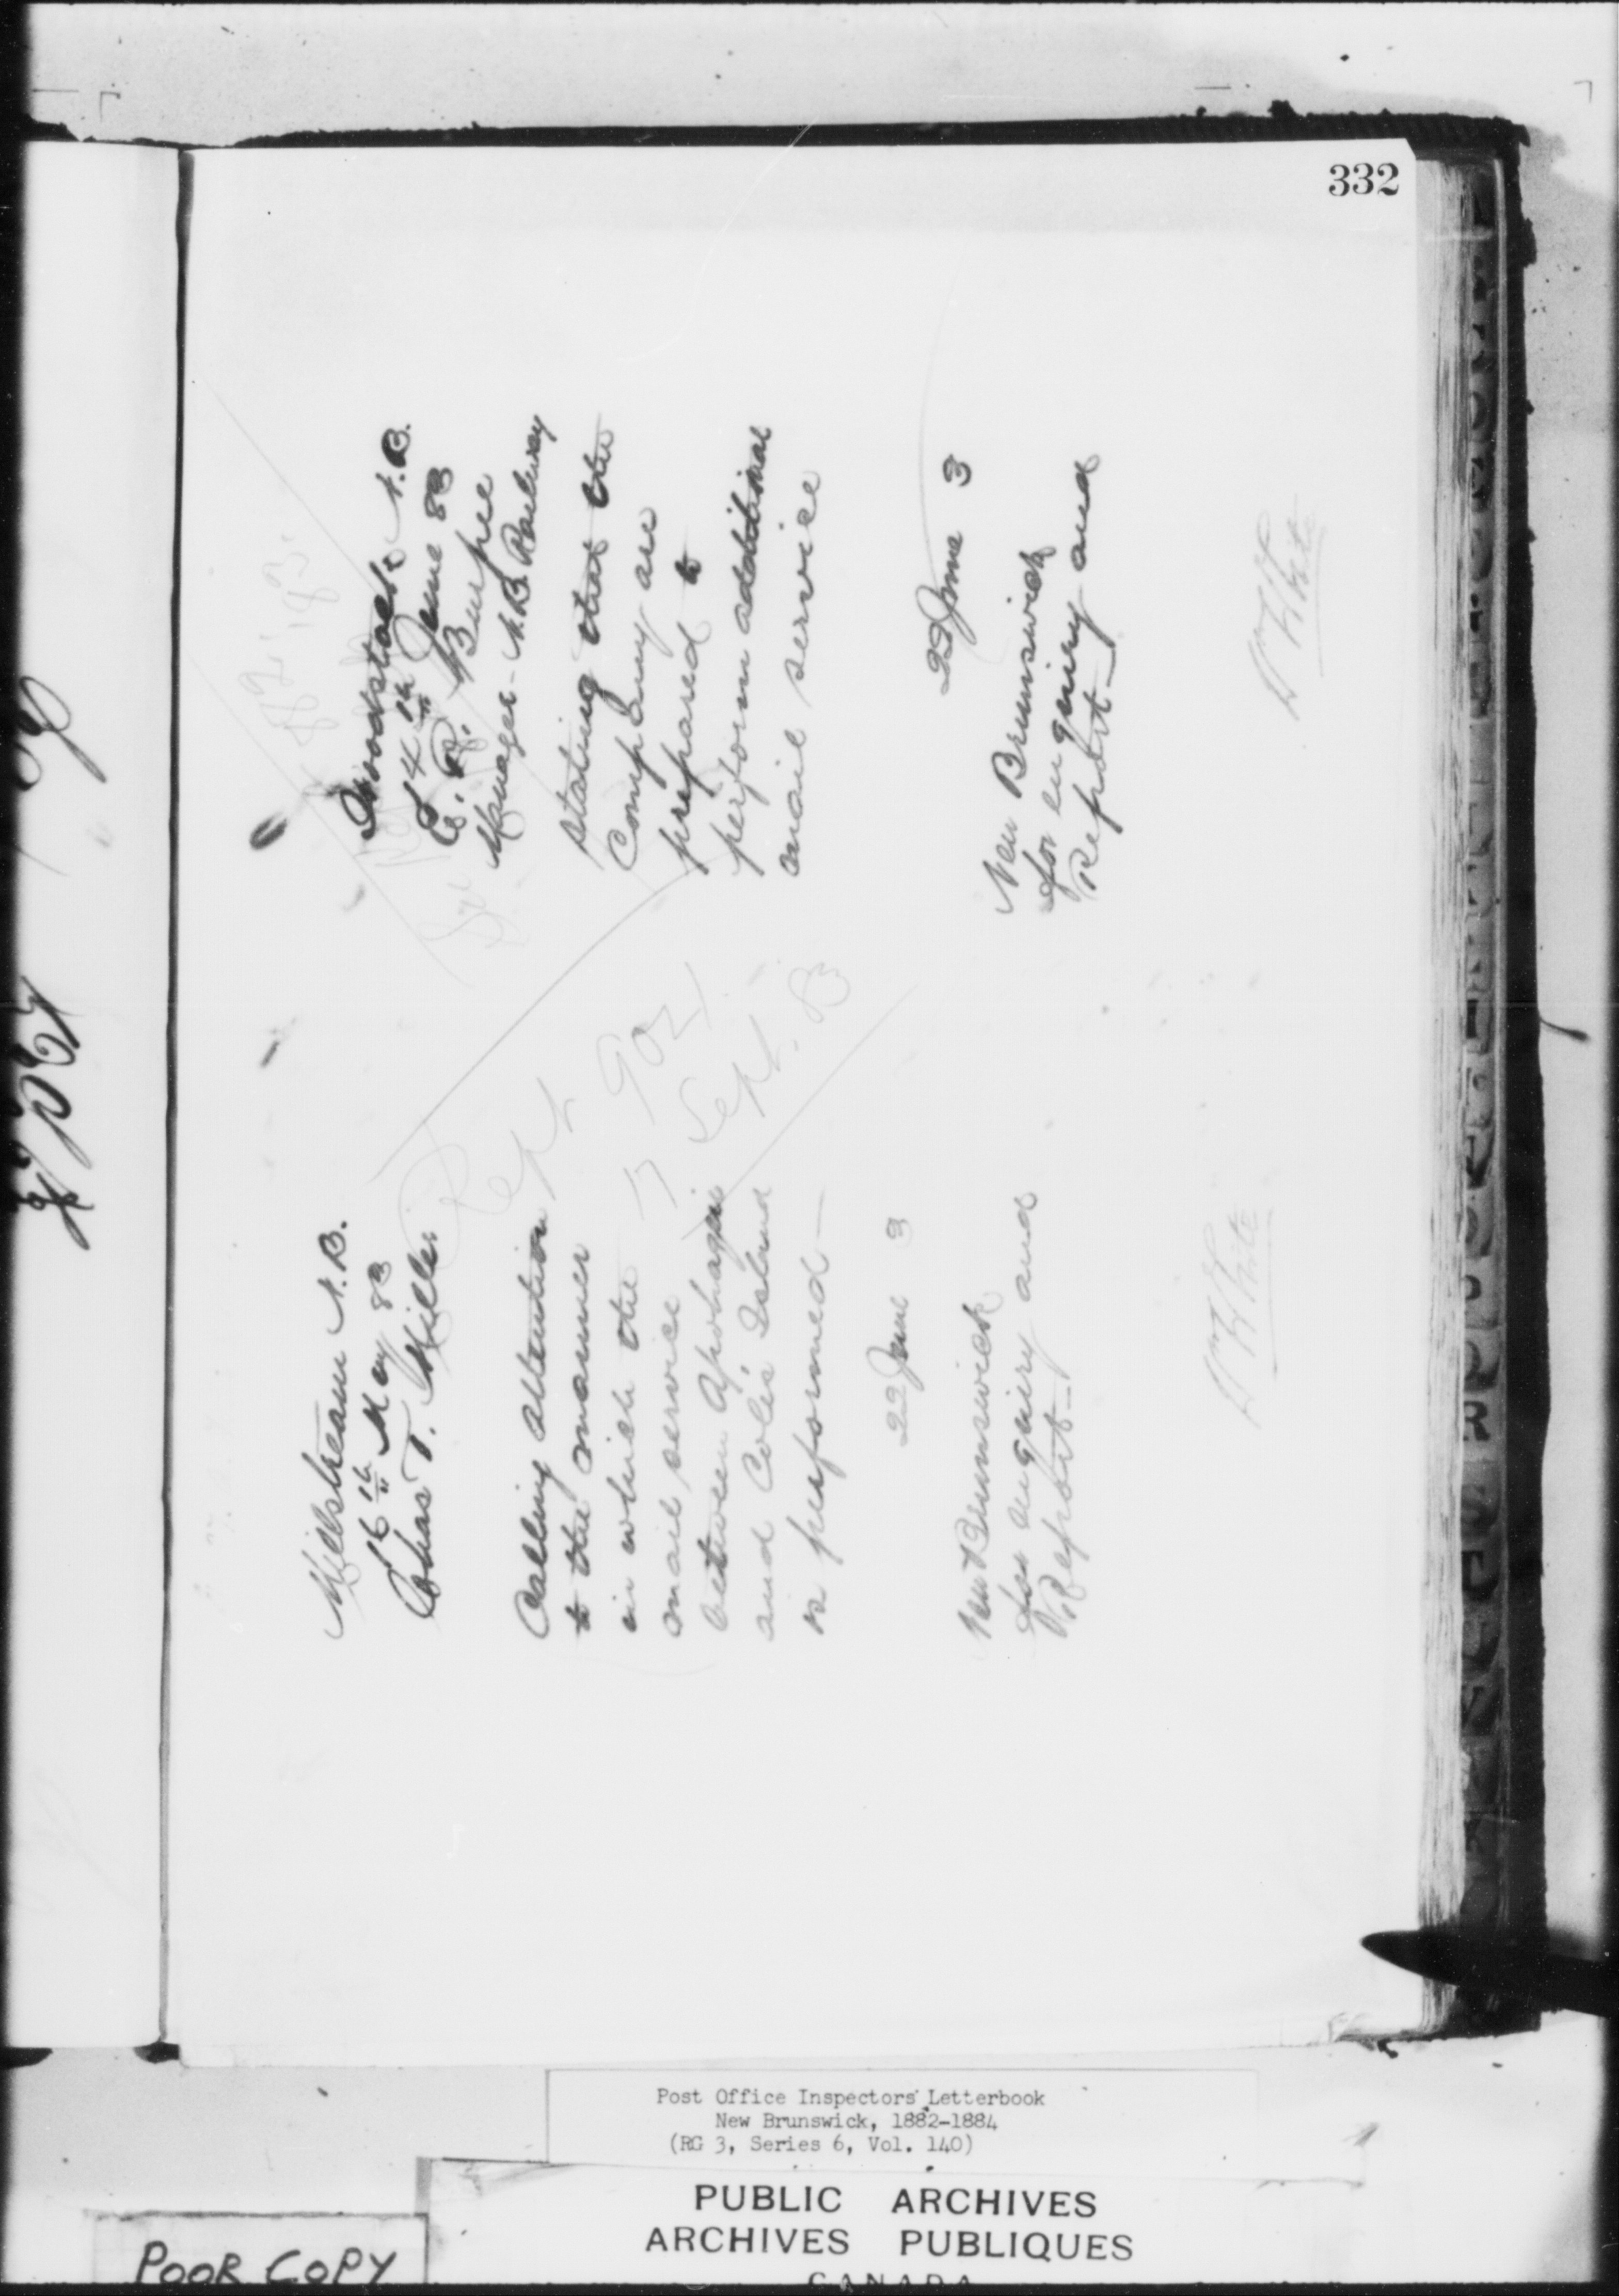 332
Millstream N.B.
16th May 83
Chas T. Miller
Calling attention
to the manner
in which the
mail service
between Apohaqui
and Cole's Island
is performed—
22 June 3
New Brunswick
for enquiry and
Report—
Rept 902
17 Sept. 83
Woodstock N.B.
14th June 83
E. R. Burpee
Manager - N.B. Railway
stating that the
Company are
prepared to
perform additional
mail service
22 June 3
New Brunswick
for enquiry and
Report—
Post Office Inspectors' Letterbook
New Brunswick, 1882-1884
(RG 3, Series 6, Vol. 140)
PUBLIC ARCHIVES
ARCHIVES PUBLIQUES
CANADA
POOR COPY